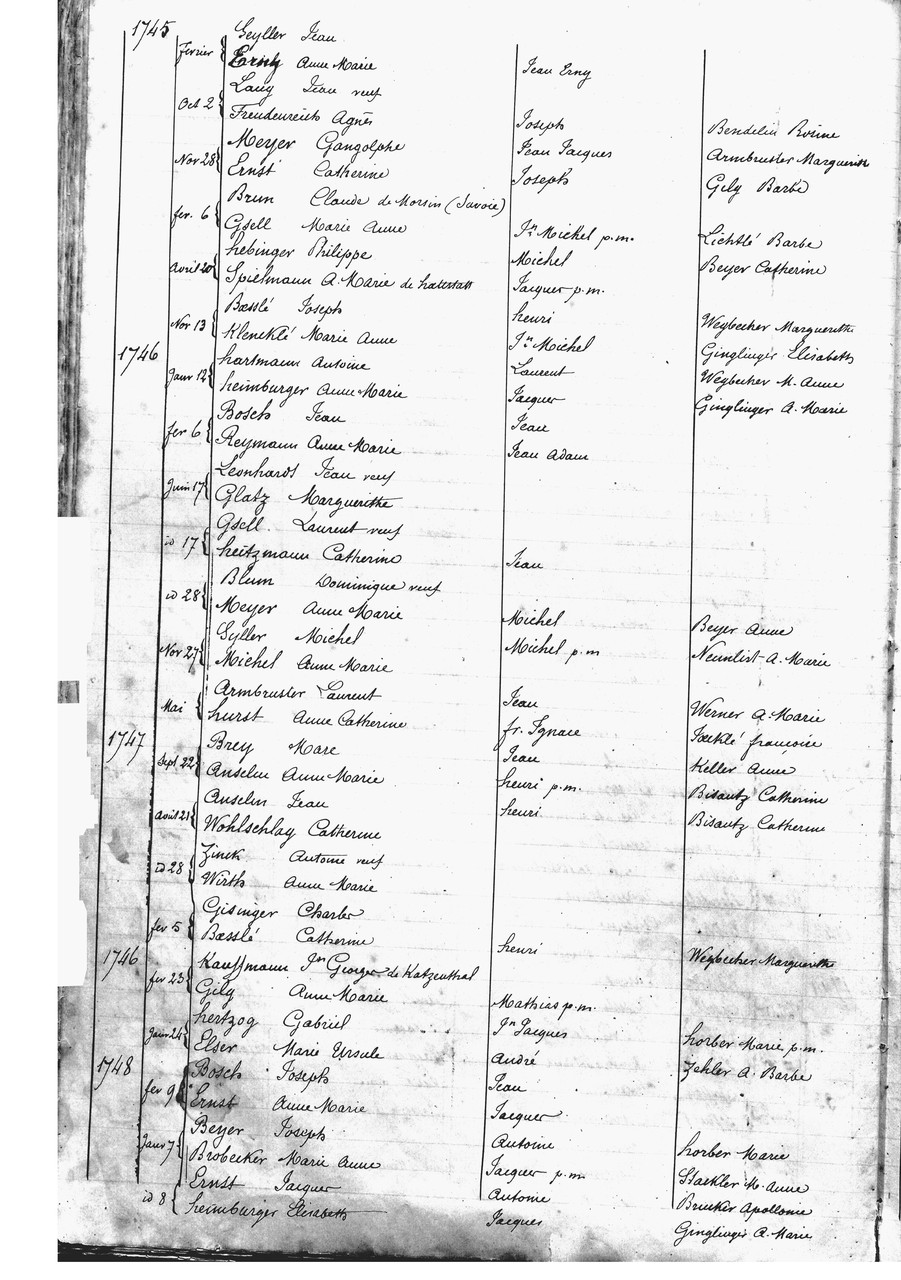 1745 Geyller Jean
fevrier Erny Anne Marie Jean Erny
Lang Jean veuf
Oct 2 Freudenreich Agnès Joseph Bendelin Rosine
Meyer Gangolphe Jean Jacques Armbruster Marguerite
Nov 28 Ernst Catherine Joseph Gily Barbe
Brun Claude de Morsin (Savoie)
fer. 6 Gsell Marie Anne Jn Michel p.m. Lichtlé Barbe
hebinger Philippe Michel Beyer Catherine
Avril 20 Spielmann A. Marie de hatestatt Jacques p.m.
Bæsslé Joseph henri Weybecher Marguerithe
Nov 13 Kleneklé Marie Anne Jn Michel Ginglinger Elisabeth
1746 hartmann Antoine Laurent Weybecher M. Anne
Janv 12 heimburger Anne Marie Jacques Ginglinger A. Marie
Bosch Jean Jean
fer 6 Reymann Anne Marie Jean Adam
Leonhardt Jean veuf
Juin 17 Glatz Marguerithe
Gsell Laurent veuf
id 17 heitzmann Catherine Jean
Blum Dominique veuf
id 28 Meyer Anne Marie Michel Beyer Anne
Syller Michel Michel p.m Neunlist A. Marie
Nov 27 Michel Anne Marie
Armbruster Laurent Jean Werner A. Marie
Mai hurst Anne Catherine fr. Ignace Jæcklé françoise
1747 Brey Marc Jean Keller Anne
Sept 22 Anselm Anne Marie henri p.m. Bisantz Catherine
Anselm Jean henri Bisantz Catherine
avril 21 Wohlschlag Catherine
Zinck Antoine veuf
id 28 Wirth Anne Marie
Gisinger Charles
fer 5 Bæsslé Catherine henri Weybecher Marguerithe
1746 Kauffmann Jn Georges de Katzenthal
fer 23 Gily Anne Marie Mathias p.m.
hertzog Gabriel Jn Jacques horber Marie p.m.
Janv 24 Elser Marie Ursule André Zehler A. Barbe
1748 Bosch Joseph Jean
fer 9 Ernst Anne Marie Jacques
Beyer Joseph Antoine horber Marie
Janv 7 Brobecker Marie Anne Jacques p.m. Stæckler M. Anne
Ernst Jacques Antoine Brucker Apollonie
id 8 heimburger Elisabeth Jacques Ginglinger A. Marie